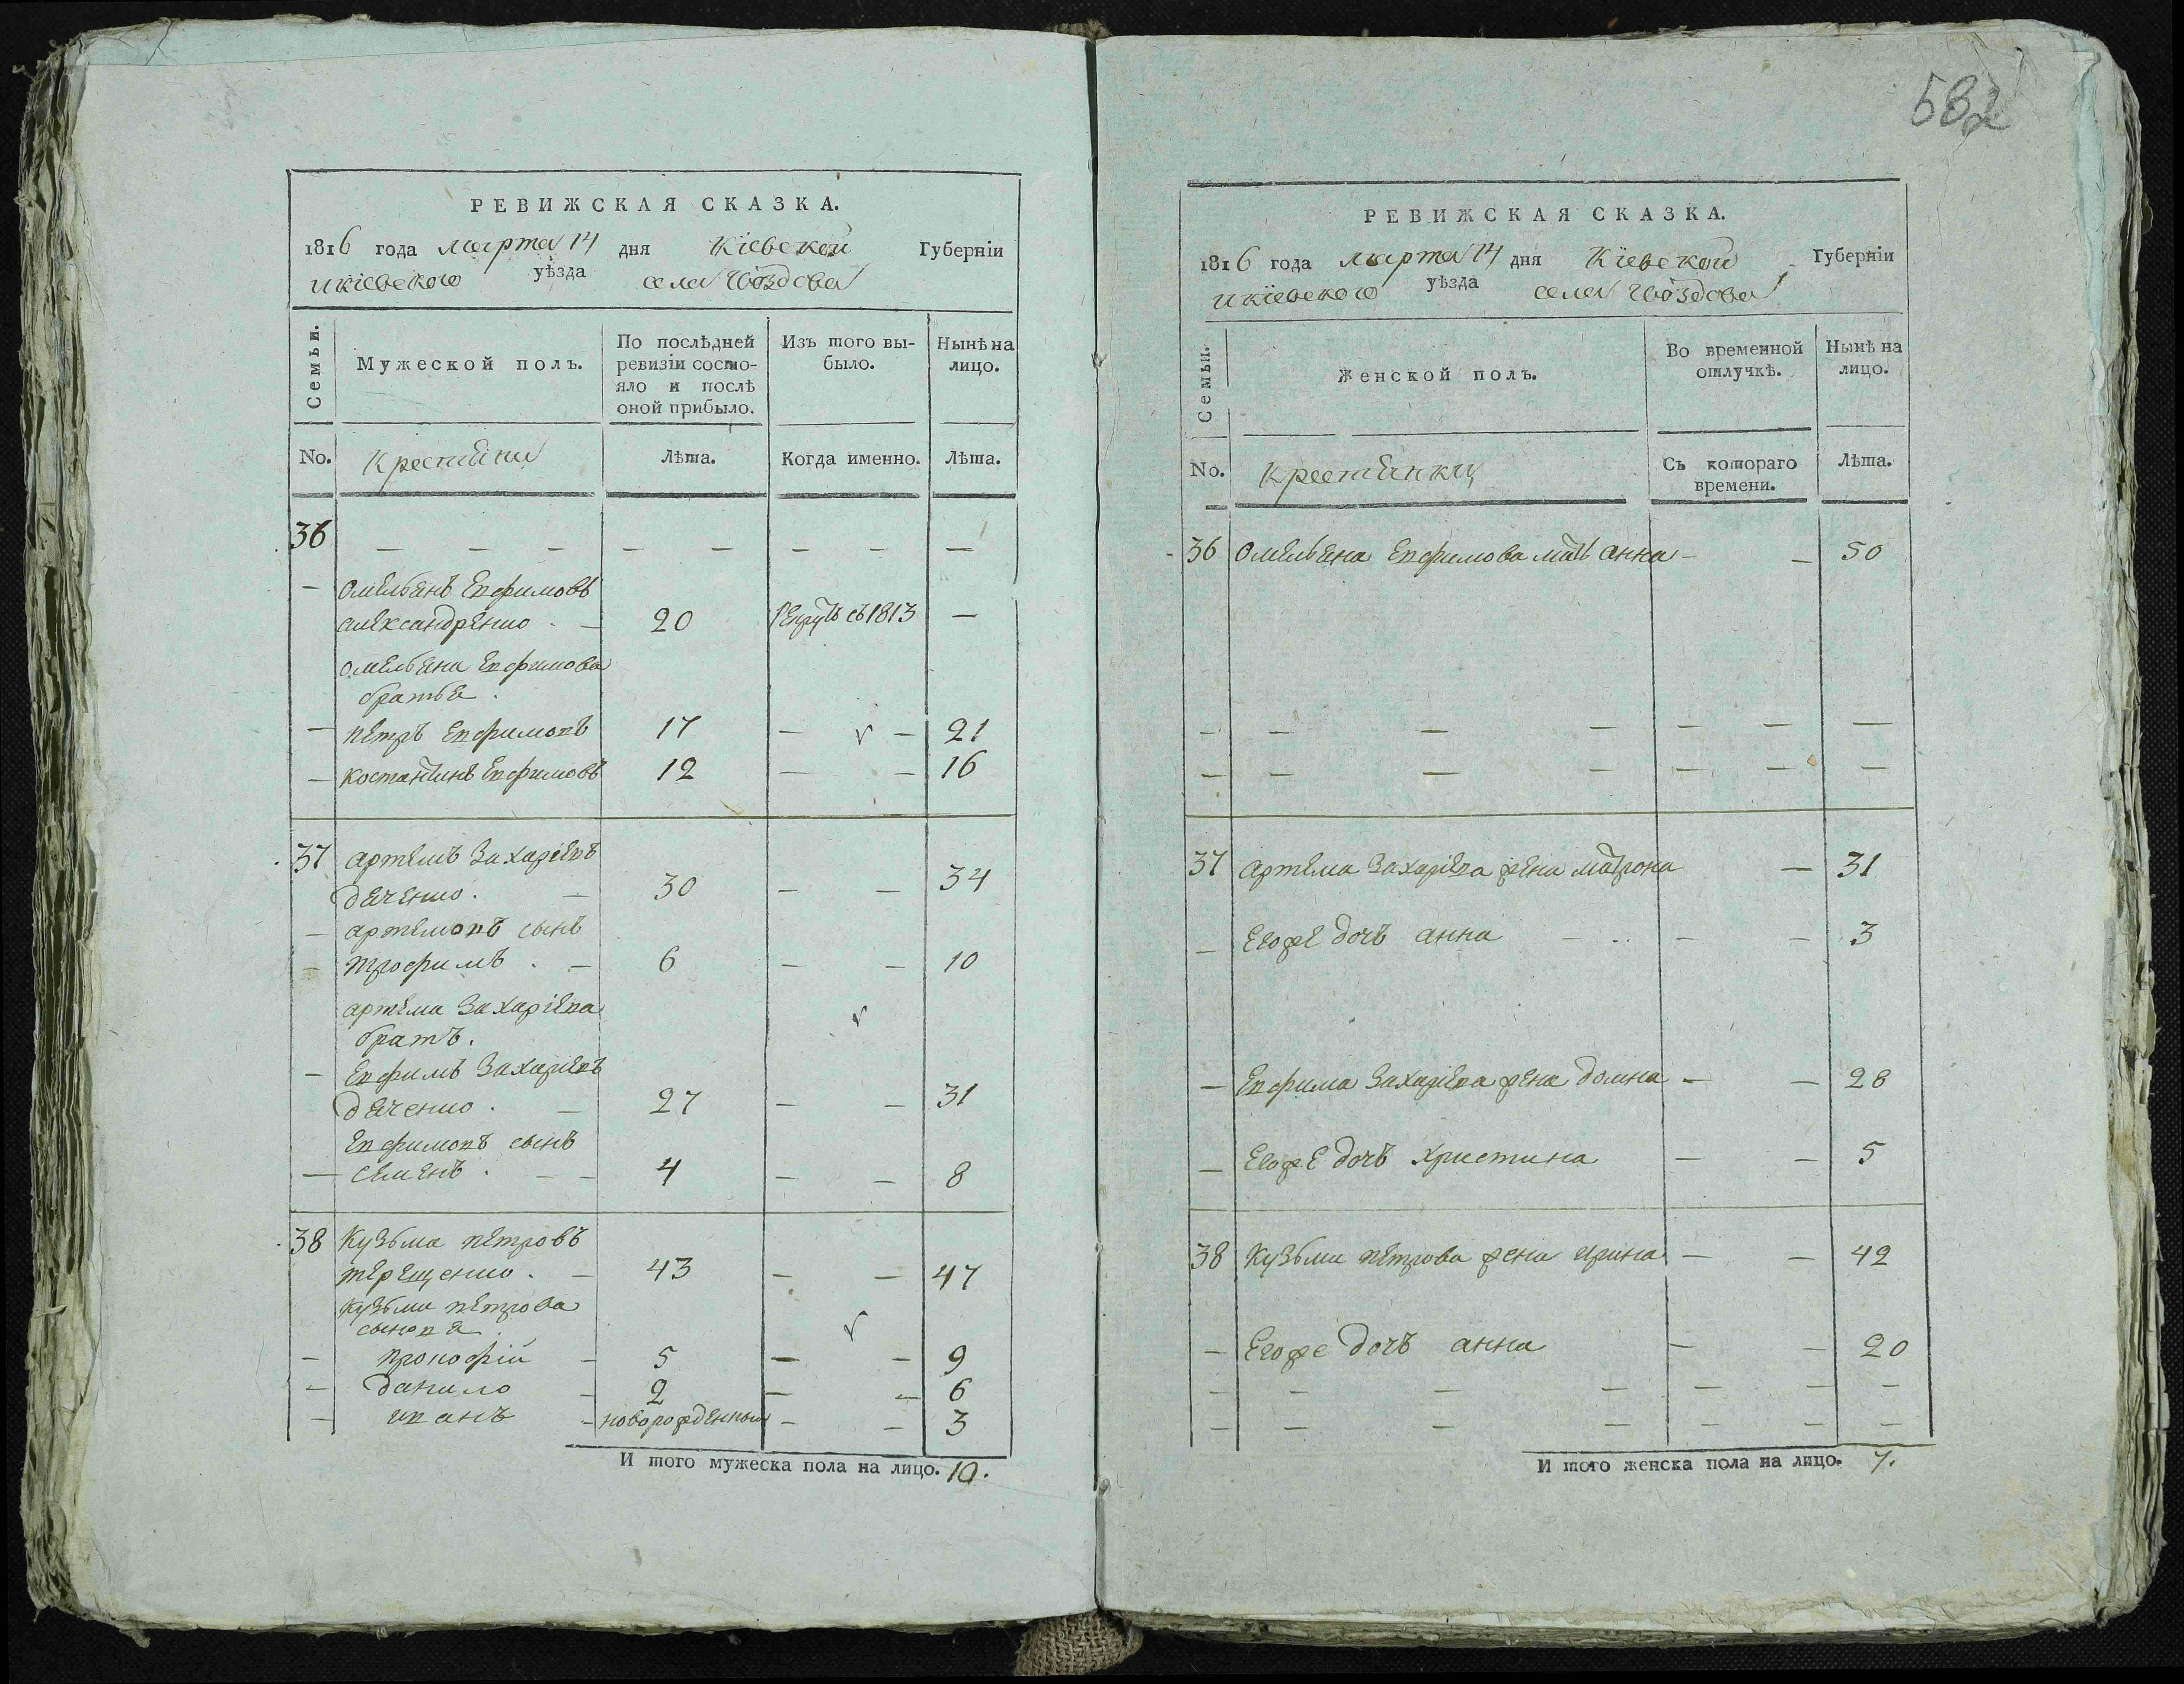 582
РЕВИЖСКАЯ СКАЗКА.
1816 года марта 14 дня Кіевской Губерніи
икіевского уѣзда села Гвоздова
Семьи.
Мужеской полъ.
По послѣдней ревизіи состояло и послѣ оной прибыло.
Изъ того выбыло.
Нынѣ на лицо.
No. Крестяни Лѣта. Когда именно. Лѣта.
36 — — — — — — — —
— омелянъ Епфимовъ
александренко - — 20 Рекрутъ съ 1813 —
омеляна Епфимова
братья .
— петръ Епфимопъ 17 — — 21
— костантинъ Епфимовъ 12 — — 16
37 артемъ Захаріепъ
дяченко . — 30 — — 34
— артемопъ сынъ
— трофимъ . — 6 — — 10
артема Захаріепа
братъ .
— Епфимъ Захаріепъ
дяченко . — 27 — — 31
Епфимопъ сынъ
— семенъ . — — 4 — — 8
38 Кузьма петровъ
терещенко . — 43 — — 47
Кузьми петрова
сынопя .
— прокофій — 5 — — 9
— данило — 2 — — 6
— ипанъ — новорожденный — — 3
И того мужеска пола на лицо. 10.
РЕВИЖСКАЯ СКАЗКА.
1816 года марта 14 дня Кіевской Губерніи
икіевского уѣзда села Гвоздова
Семьи.
Женской полъ.
Во временной отлучкѣ.
Нынѣ на лицо.
No. Крестянки Съ котораго времени. Лѣта.
36 Омеляна Епфимова мать анна — — 50
— — — — — — —
— — — — — — —
37 артема Захаріепа жена матрона — 31
— Егоже дочъ анна — — — 3
— Епфима Захаріепа жена домна — — 28
— Егоже дочъ христина — — 5
38 Кузьми петрова жена ирина — — 42
— Егоже дочъ анна — — 20
— — — — — — —
— — — — — — —
И того женска пола на лицо. 7.